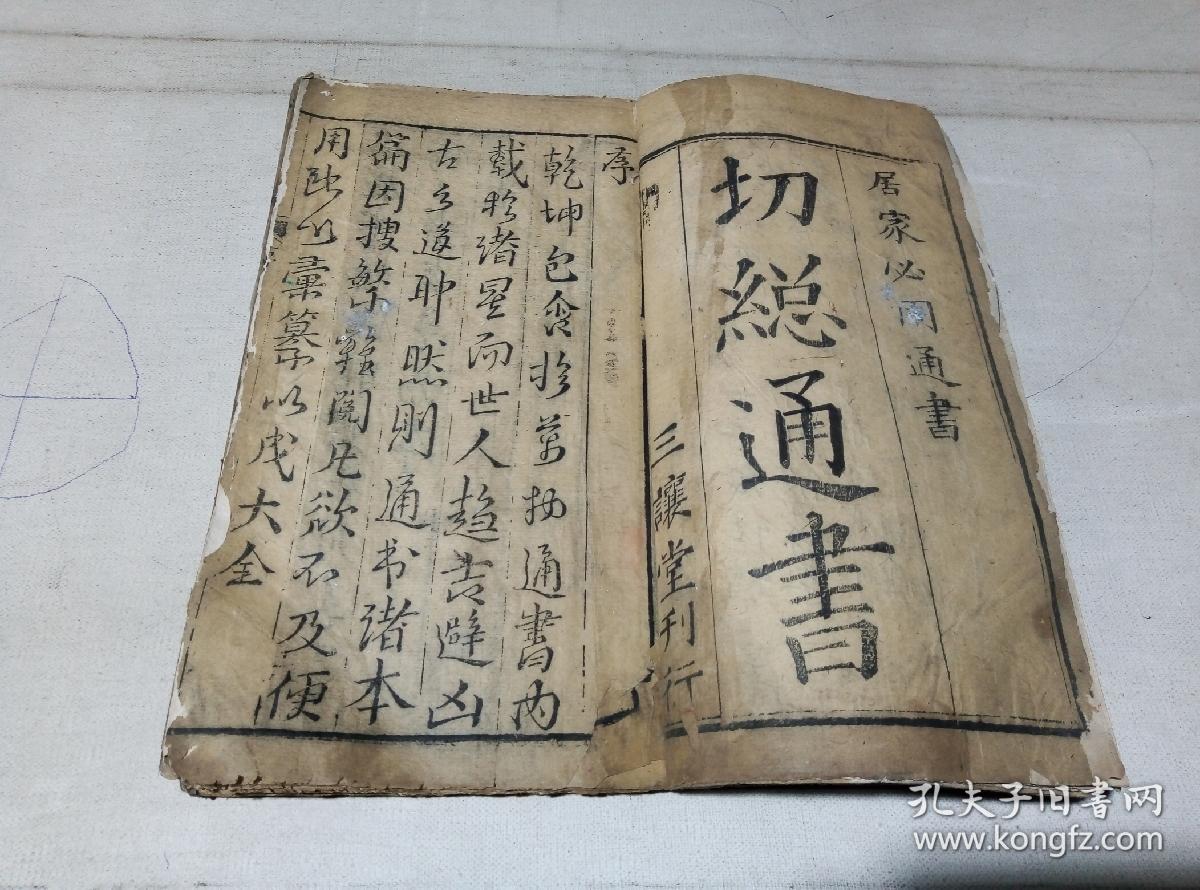 居家必用通書
切総通書
三讓堂刊行
序
乾坤包含於萬物通書内
載於諸星而世人趋吉避凶
古之道耶然則通书诸本
篇因搜繁雜閲凡欲不及便
用 彙纂以成大全
孔夫子旧书网
www.kongfz.com